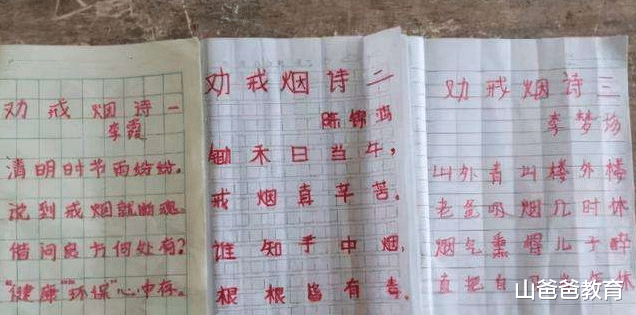 劝戒烟诗一
李霞
清明时节雨纷纷。
说到戒烟就断魂。
借问良方何处有?
"健康""环保"心中存。
劝戒烟诗二
陈锦鸿
锄禾日当牛,
戒烟真辛苦。
谁知手中烟,
根根皆有毒。
劝戒烟诗三
李梦
山外青山楼外楼
老爸吸烟几时休
烟气熏得儿子醉
直把自
山爸爸教育